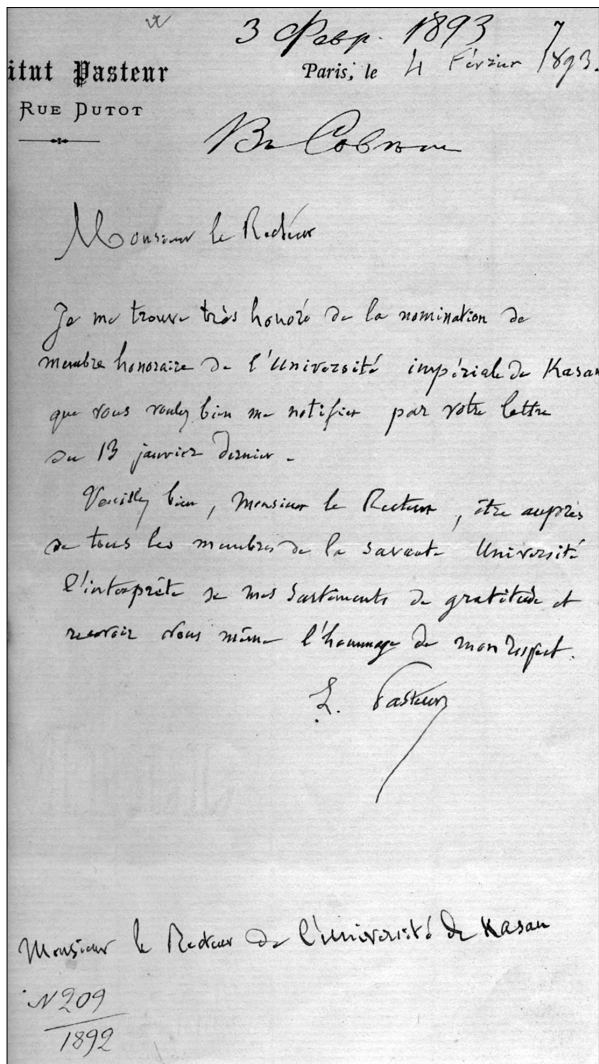 3 Февр. 1893
itut Pasteur
Paris, le 4 Février 1893.
RUE DUTOT
Въ
Monsieur le Recteur
Je me trouve très honoré de la nomination de
membre honoraire de l'Université impériale de Kasan
que vous voulez bien me notifier par votre lettre
du 13 janvier dernier.
Veuillez bien, Monsieur le Recteur, être auprès
de tous les membres de la savante Université
l'interprète de mes sentiments de gratitude et
recevoir vous même l'hommage de mon respect.
L. Pasteur
Monsieur le Recteur de l'Université de Kasan
N 209
1892